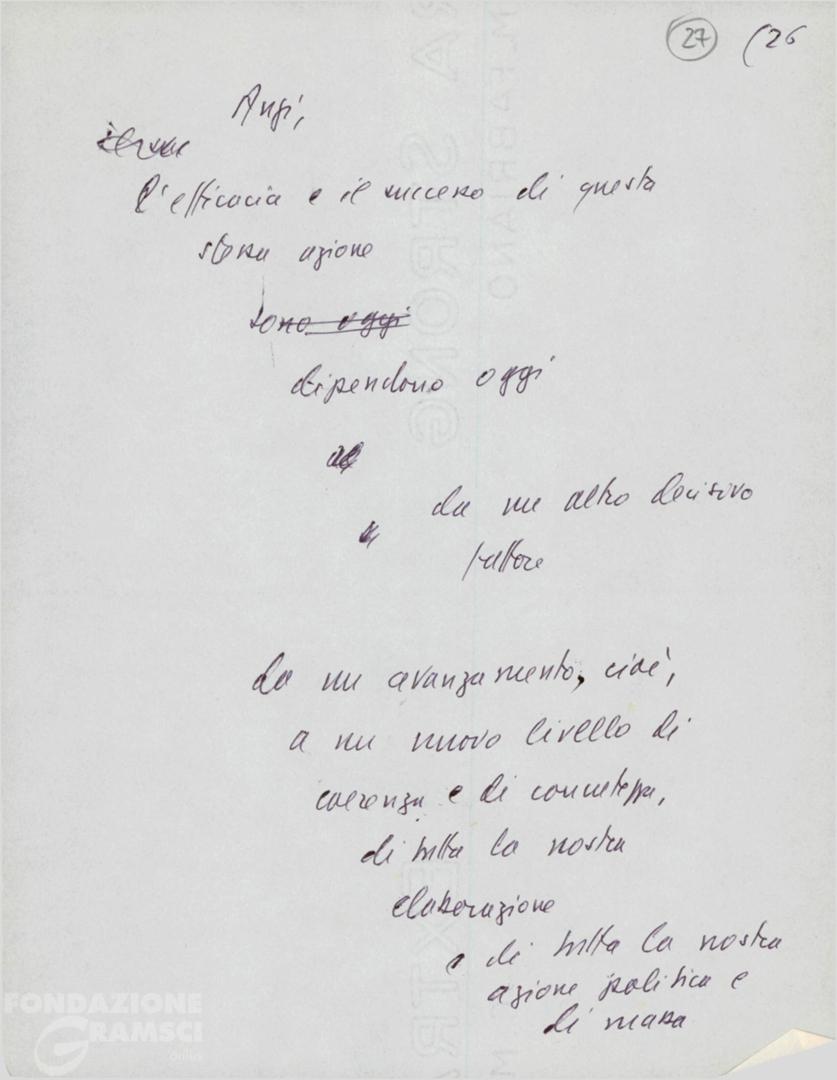 27 (26
Anzi,
l'efficacia e il successo di questa
stessa azione
sono oggi
dipendono oggi
al
da un altro decisivo
fattore
da un avanzamento, cioè,
a un nuovo livello di
coerenza e di concretezza,
di tutta la nostra
elaborazione
e di tutta la nostra
azione politica e
di massa
FONDAZIONE
GRAMSCI
onlus